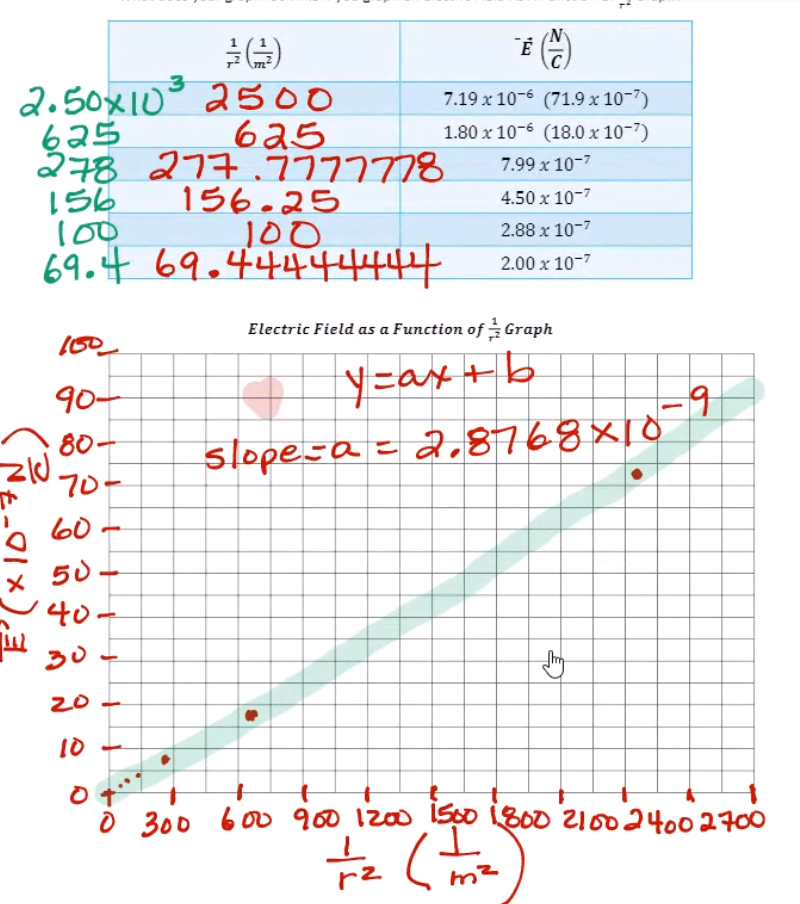 1/r² (1/m²) E⃗ (N/C)
2.50x10³ 2500 7.19 x 10⁻⁶ (71.9 x 10⁻⁷)
625 625 1.80 x 10⁻⁶ (18.0 x 10⁻⁷)
278 277.7777778 7.99 x 10⁻⁷
156 156.25 4.50 x 10⁻⁷
100 100 2.88 x 10⁻⁷
69.4 69.44444444 2.00 x 10⁻⁷
Electric Field as a Function of 1/r² Graph
y=ax+b
slope=a = 2.8768x10⁻⁹
100
90
80
70
60
50
40
30
20
10
0
E⃗ (x10⁻⁷ N/C)
0 300 600 900 1200 1500 1800 2100 2400 2700
1/r² (1/m²)